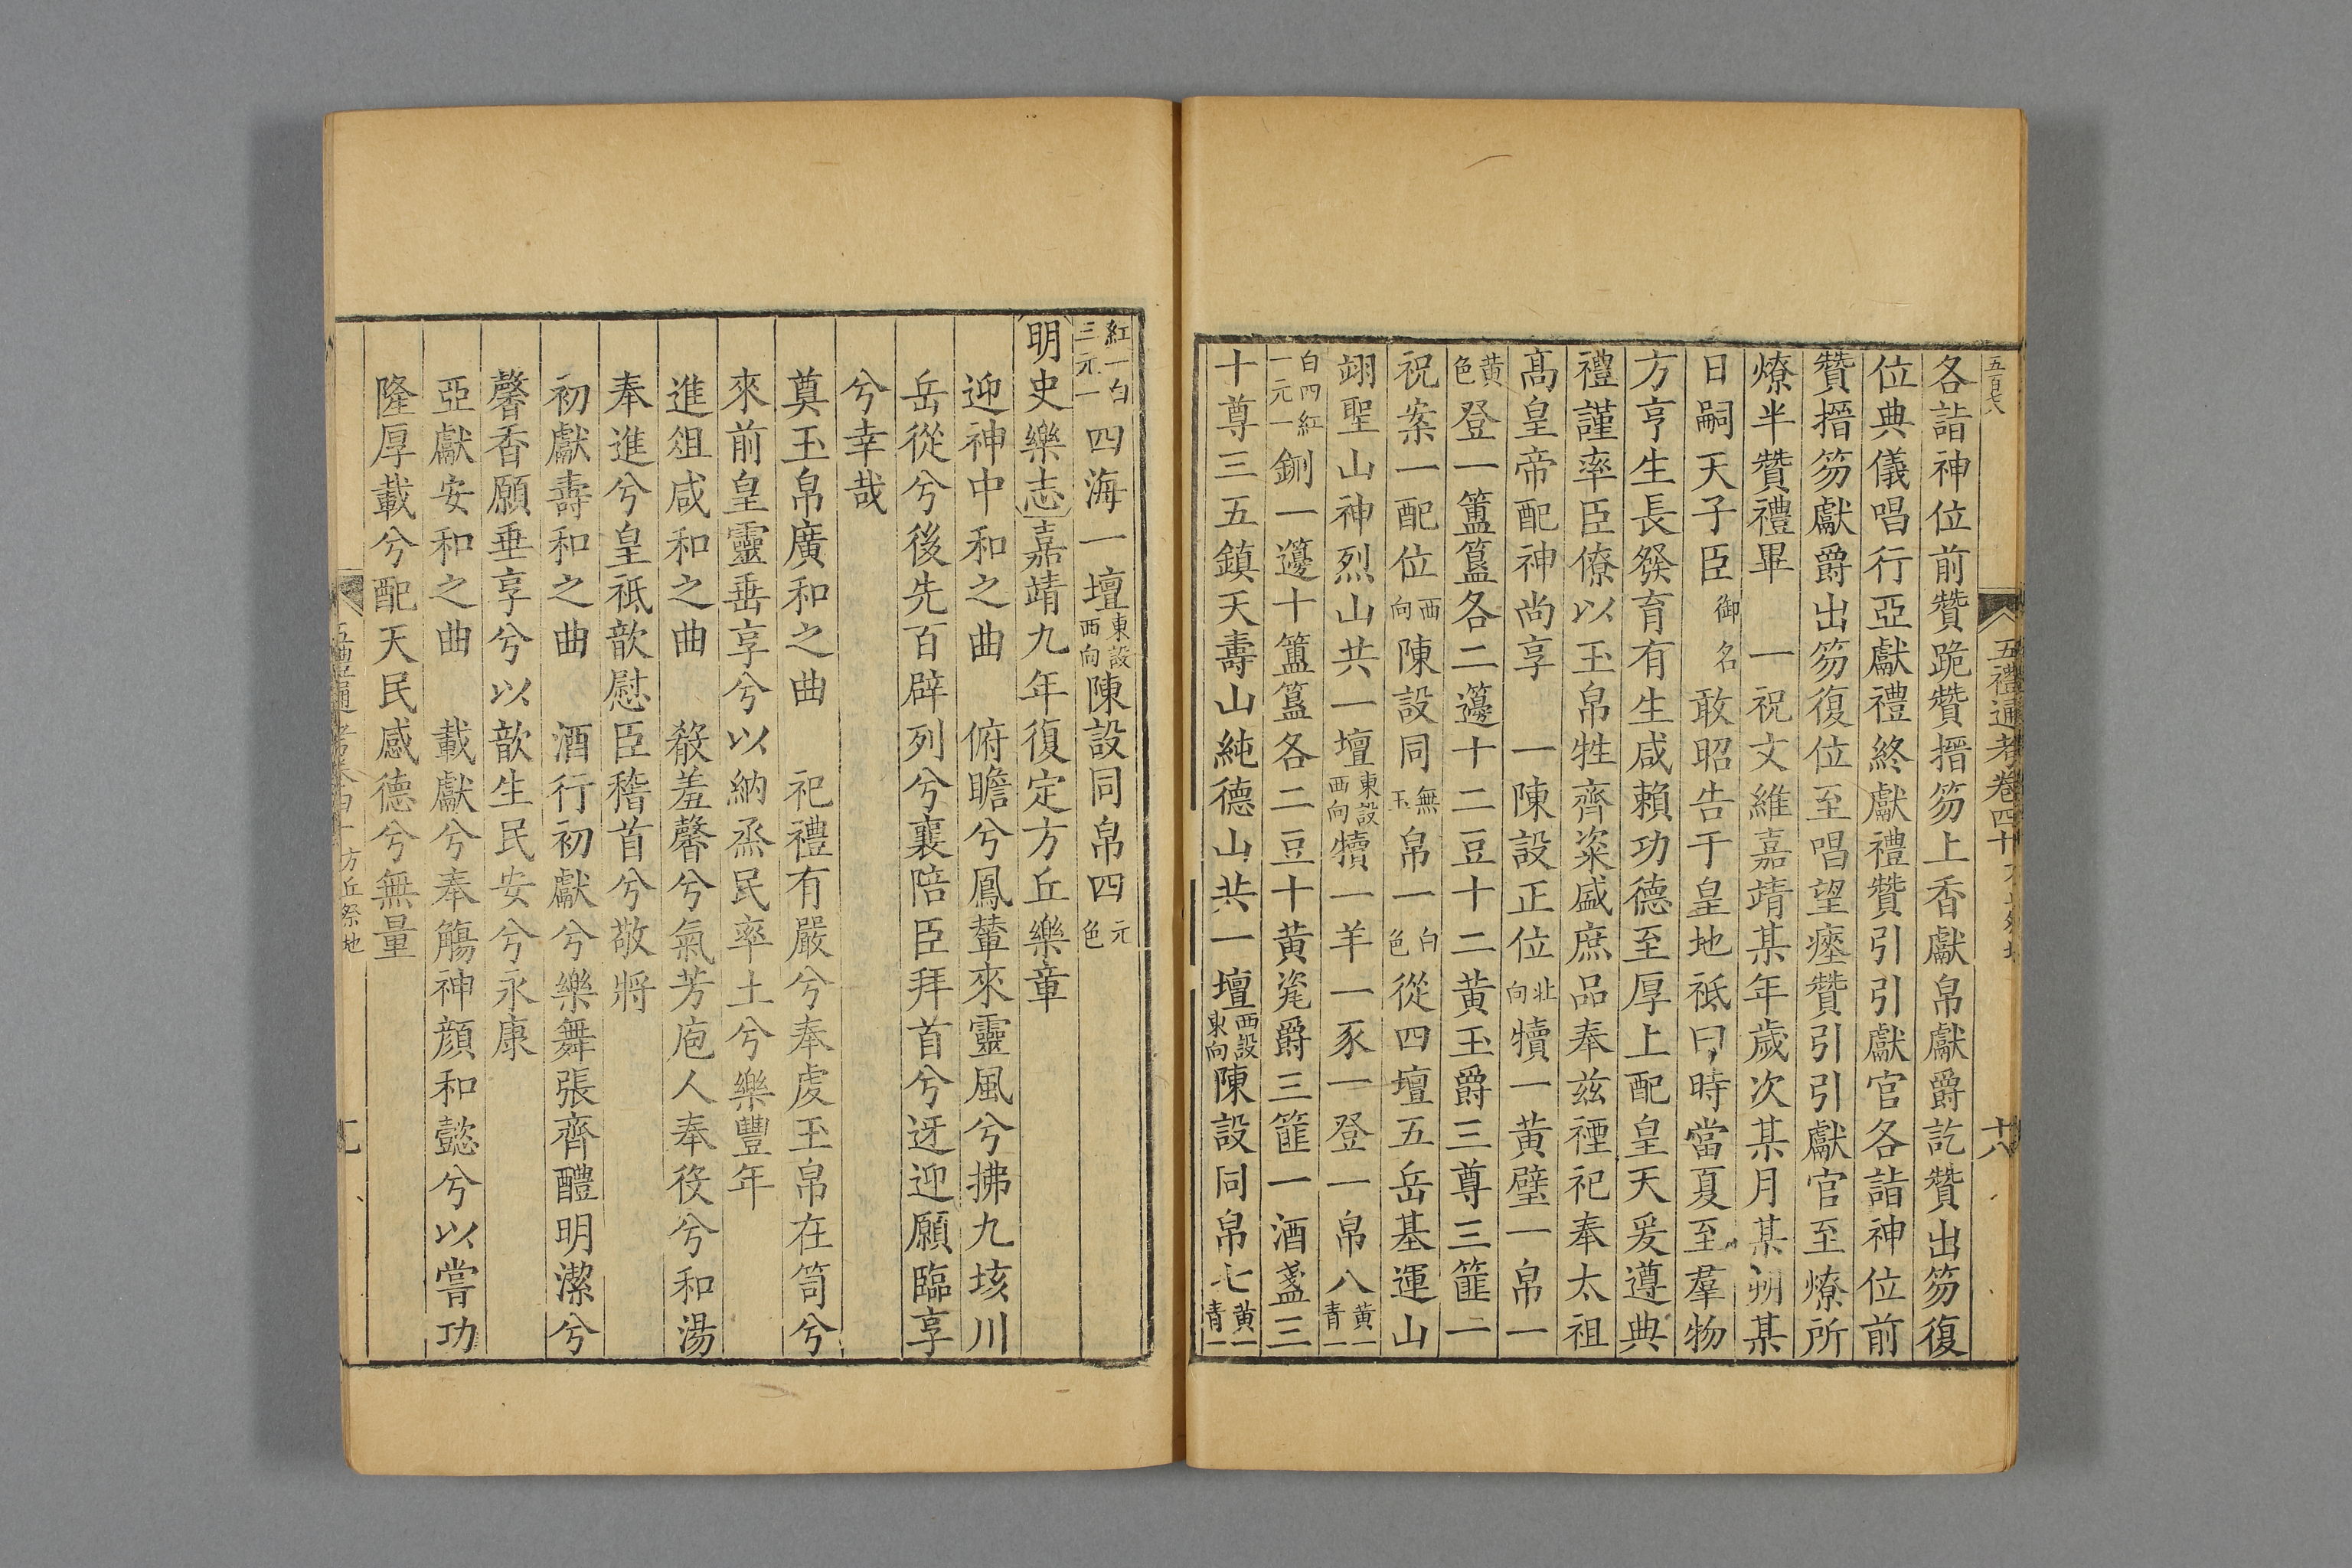 五百七八
五禮通考卷四十 方丘祭地 十八
各詣神位前贊跪贊搢笏上香獻帛獻爵訖贊出笏復
位典儀唱行亞獻禮終獻禮贊引引獻官各詣神位前
贊搢笏獻爵出笏復位至唱望瘞贊引引獻官至燎所
燎半贊禮畢 一祝文維嘉靖某年歲次某月某朔某
日嗣天子臣御名敢昭告于皇地祇曰時當夏至羣物
方亨生長發育有生咸賴功德至厚上配皇天爰遵典
禮謹率臣僚以玉帛牲齊粢盛庶品奉兹禋祀奉太祖
髙皇帝配神尚享 一陳設正位北向犢一黄璧一帛一
黄色登一簠簋各二籩十二豆十二黄玉爵三尊三篚一
祝案一配位西向陳設同無玉帛一白色從四壇五岳基運山
翊聖山神烈山共一壇東設西向犢一羊一豕一登一帛八黄一青一
白四紅一元一鉶一籩十簠簋各二豆十黄瓷爵三篚一酒盞三
十尊三五鎮天壽山純德山共一壇西設東向陳設同帛七黄一青一
紅一白三元一四海一壇東設西向陳設同帛四元色
明史樂志嘉靖九年復定方丘樂章
迎神中和之曲 俯瞻兮鳳輦來靈風兮拂九垓川
岳從兮後先百辟列兮襄陪臣拜首兮迓迎願臨享
兮幸哉
奠玉帛廣和之曲 祀禮有嚴兮奉虔玉帛在笥兮
來前皇靈垂享兮以納烝民率土兮樂豐年
進俎咸和之曲 殽羞馨兮氣芳庖人奉役兮和湯
奉進兮皇祇歆慰臣稽首兮敬將
初獻壽和之曲 酒行初獻兮樂舞張齊醴明潔兮
馨香願垂享兮以歆生民安兮永康
亞獻安和之曲 載獻兮奉觴神顔和懿兮以嘗功
隆厚載兮配天民感德兮無量
方丘祭地